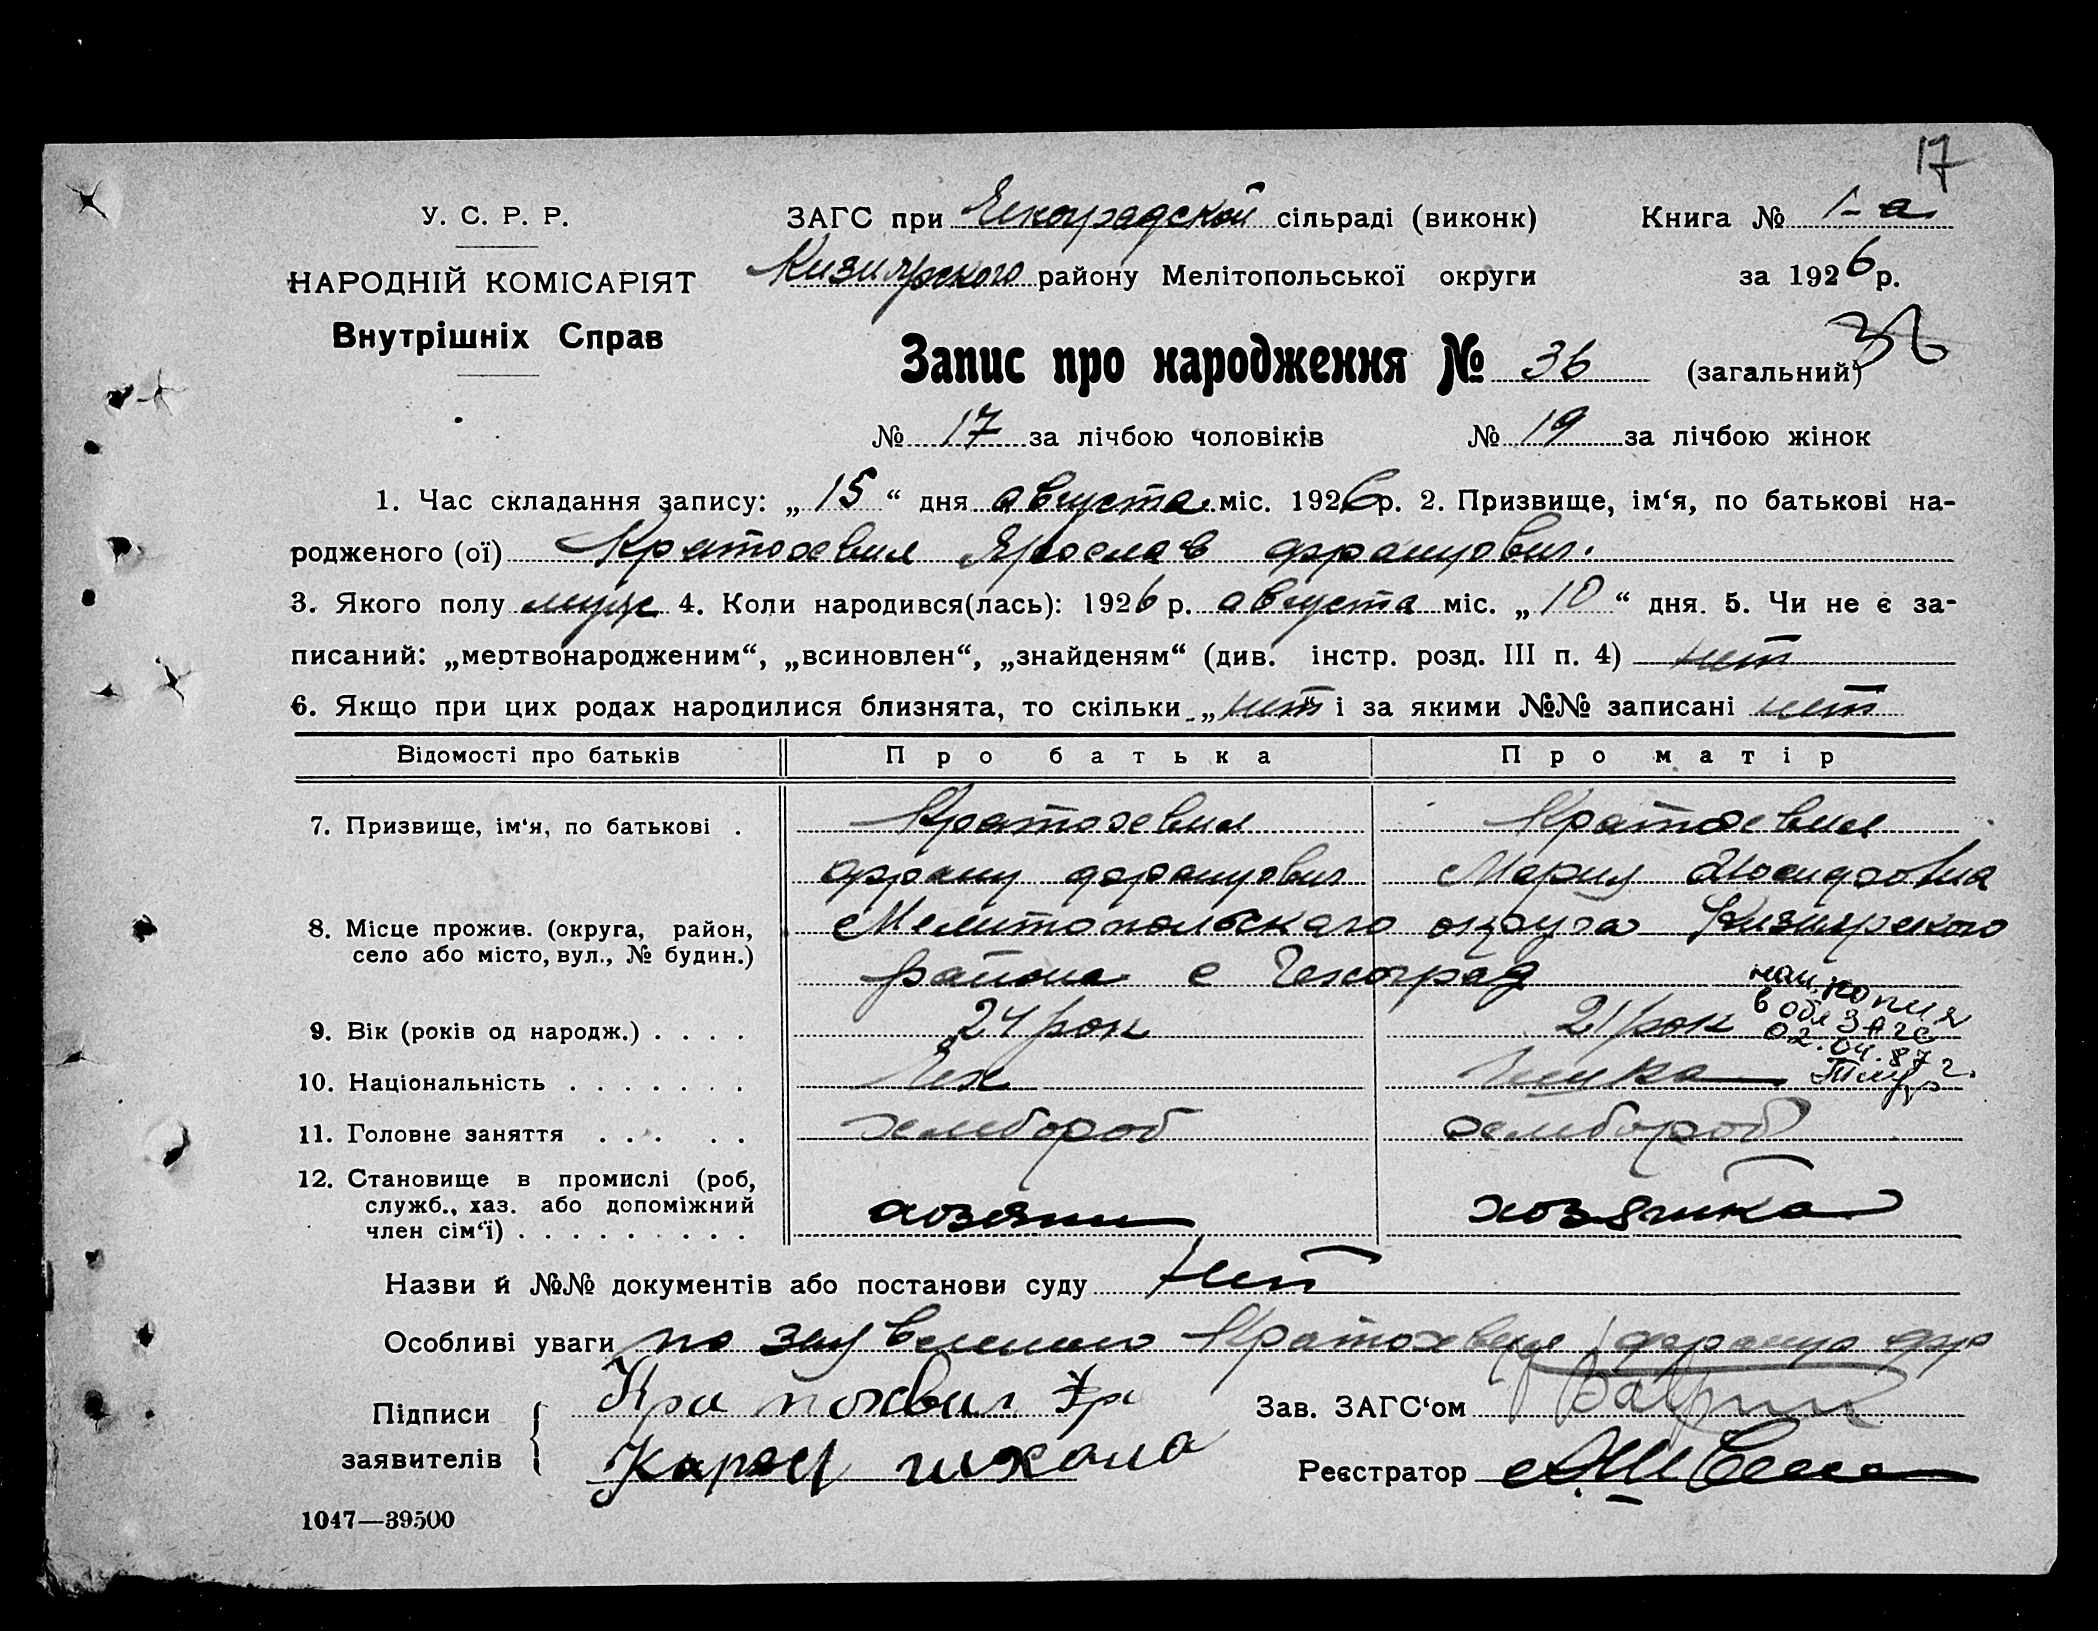 17
У. С. Р. Р.
НАРОДНІЙ КОМІСАРІЯТ
Внутрішніх Справ
ЗАГС при Чехоградской сільраді (виконк)
Кизиярского району Мелітопольської округи
Книга № 1-а
за 1926 р.
Запис про народження № 36 (загальний)
36
№ 17 за лічбою чоловіків № 19 за лічбою жінок
1. Час складання запису: „15“ дня августа міс. 1926р. 2. Призвище, ім‘я, по батькові на-
родженого (ої) Кратохвил Ярослав Францович.
3. Якого полу мужс 4. Коли народився(лась): 1926 р. августа міс. „10“ дня. 5. Чи не є за-
писаний: „мертвонародженим“, „всиновлен“, „знайденям“ (див. інстр. розд. III п. 4) нет
6. Якщо при цих родах народилися близнята, то скільки „нет“ і за якими №№ записані нет
Відомості про батьків Про батька Про матір
7. Призвище, ім‘я, по батькові . Кратохвил Кратохвил
Франц Францович Мария Иосифовна
8. Місце прожив. (округа, район, село або місто, вул., № будин.) Мелитопольского округа Кизиярского
района с Чехоград
9. Вік (років од народж.) . . . . 24 рок 21 рок
копия
в обл ЗАГС
02.04.87 г.
10. Національність . . . . . . . Чех Чешка
11. Головне заняття . . . . . хлебороб хлебороб
12. Становище в промислі (роб, служб., хаз. або допоміжний член сім‘ї) . . . . . . . . . хозяин хозяйка
Назви й №№ документів або постанови суду нет
Особливі уваги по заявлению Кратохвил Франца
Підписи
заявителів
Кратохвил Фр
Карел
Зав. ЗАГС‘ом
Реєстратор
1047—39500